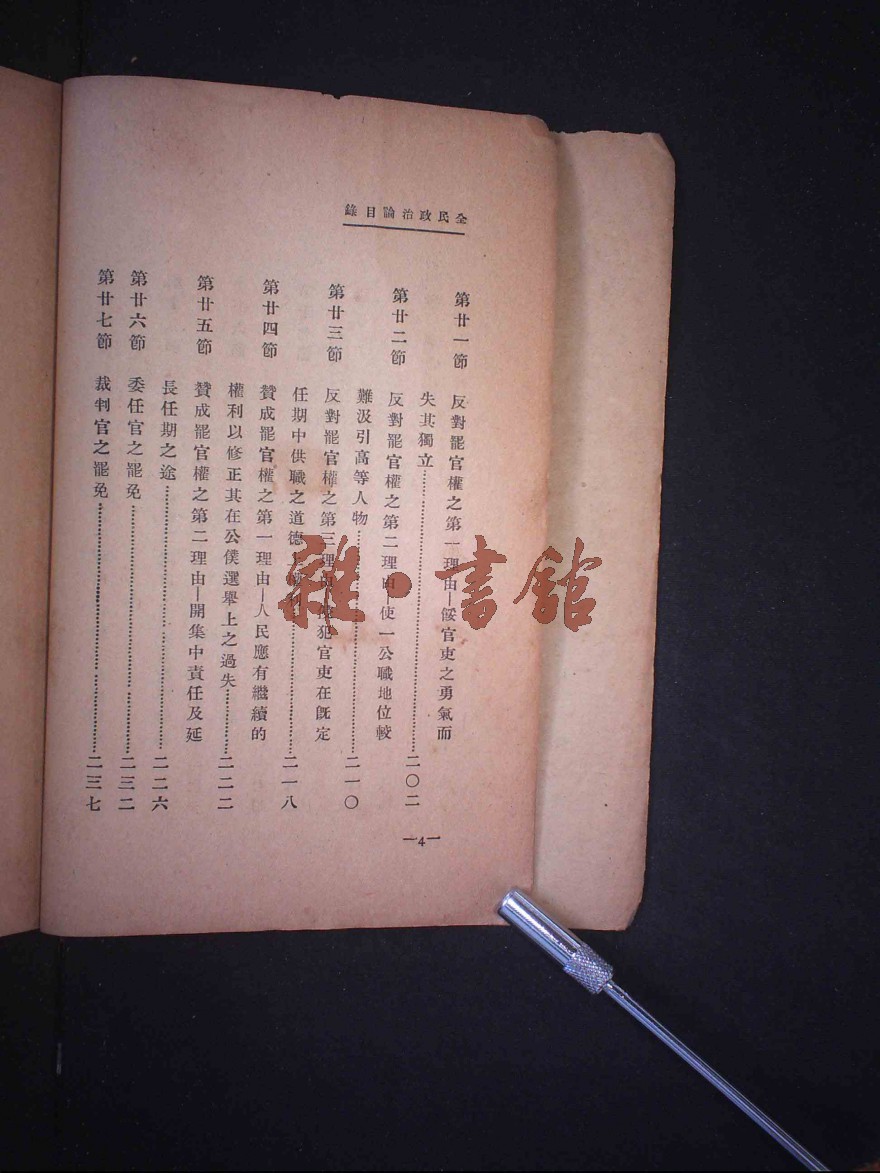 全民政治論目錄
第廿一節　反對罷官權之第一理由—餒官吏之勇氣而
失其獨立……二〇二
第廿二節　反對罷官權之第二理由—使一公職地位較
難汲引高等人物……二一〇
第廿三節　反對罷官權之第三理由 犯官吏在既定
任期中供職之道德……二一八
第廿四節　贊成罷官權之第一理由—人民應有繼續的
權利以修正其在公僕選舉上之過失……二二二
第廿五節　贊成罷官權之第二理由—開集中責任及延
長任期之途……二二六
第廿六節　委任官之罷免……二三二
第廿七節　裁判官之罷免……二三七
—4—
雜·書館